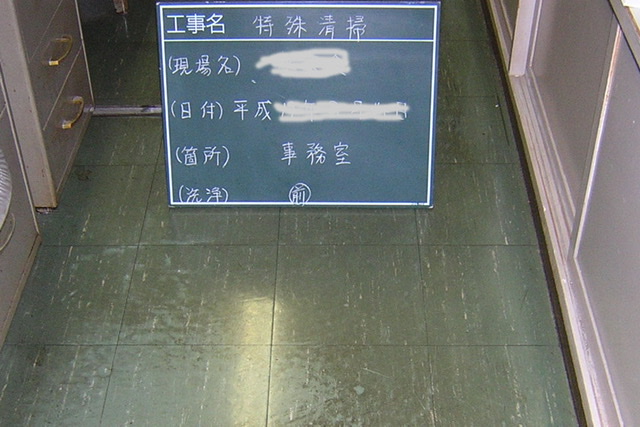 工事名 特殊清掃
(現場名)
(日付) 平成
(箇所) 事務室
(洗浄) 前